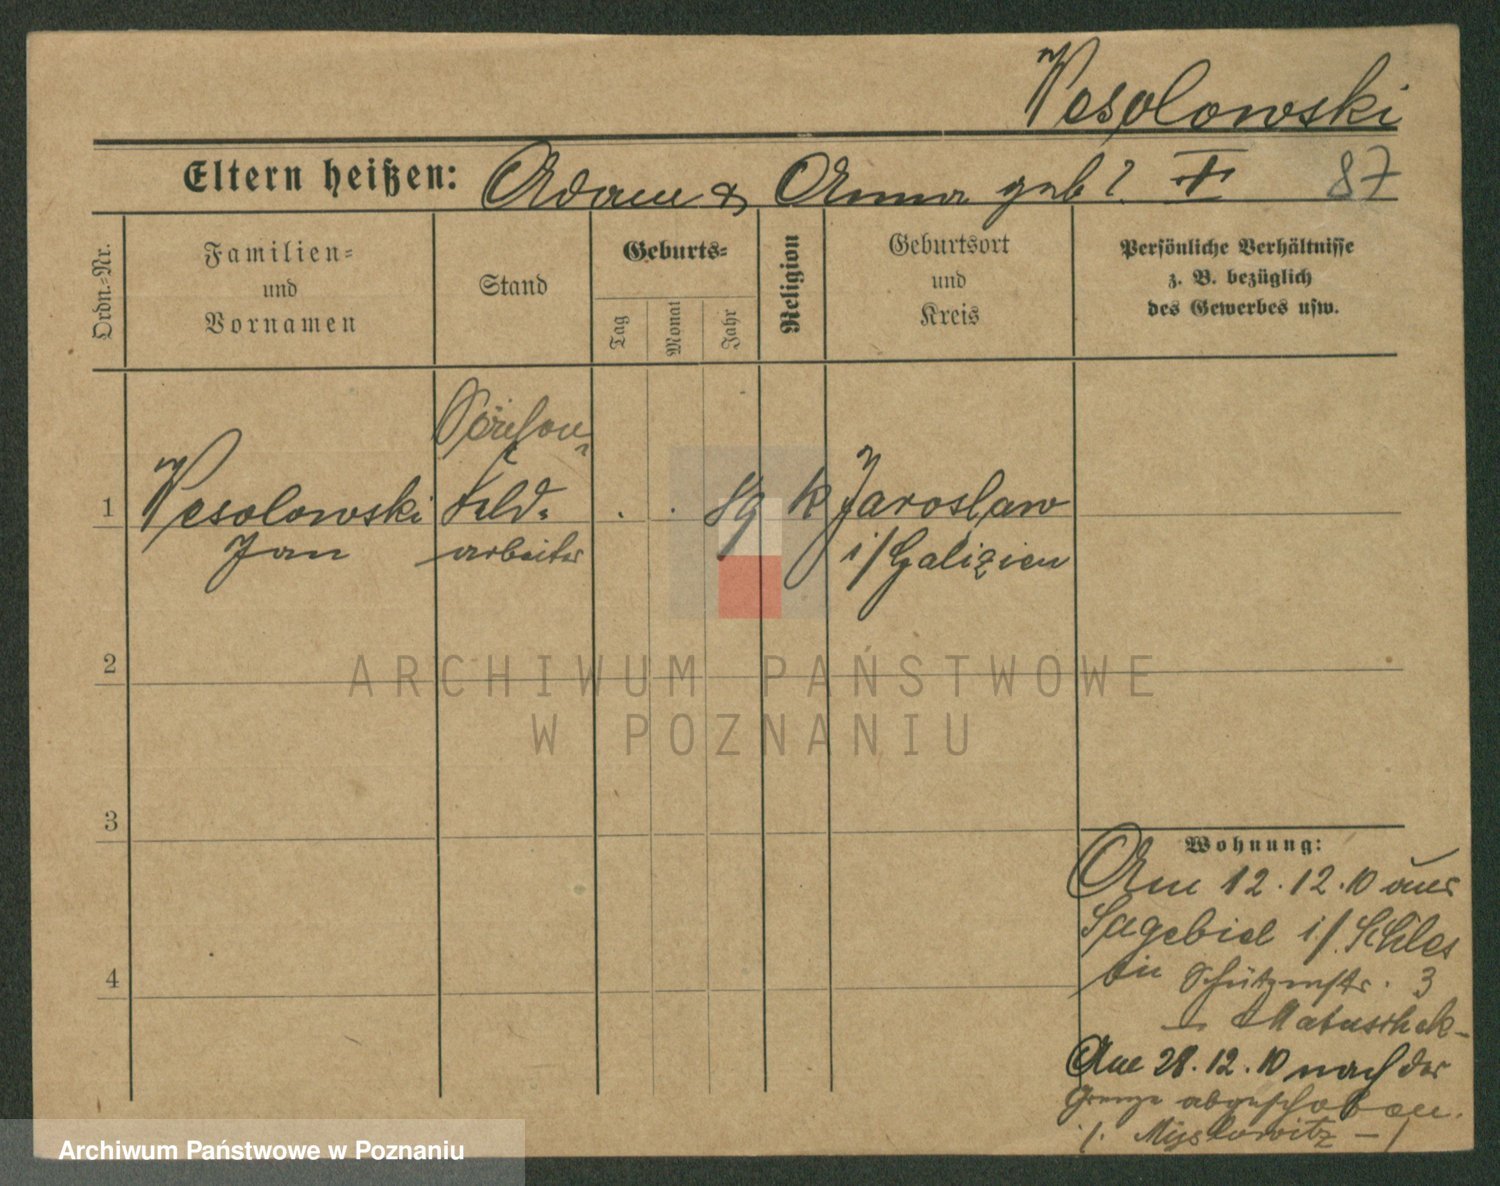 Wesolowski
Eltern heißen: Adam & Anna geb ? 87
Ordn.-Nr.
Familien=
und
Vornamen
Stand
Geburts=
Tag
Monat
Jahr
Religion
Geburtsort
und
Kreis
Persönliche Verhältnisse
z. B. bezüglich
des Gewerbes usw.
1 Wesolowski Feld= . . 89 k Jaroslaw
Jan arbeiter i/Galizien
2
ARCHIWUM PAŃSTWOWE
W POZNANIU
3
4
Wohnung:
Am 12.12.10 aus
Sagebiel i/. Schles
in Schützenstr. 3
– Matuschek –
Am 28.12.10 nach der
Grenze abgeschoben.
/. Myslowitz – /
Archiwum Państwowe w Poznaniu